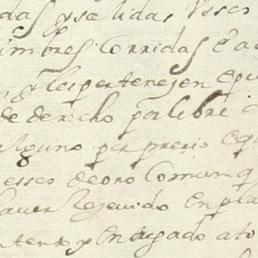 das y salidas Usses
umbres Corridas ē a
y les pertenesen e qu
de derecho por libre
alguno por precio e q
esses de oro Comun q
auer Resevido en pla
ntento y entregado a to